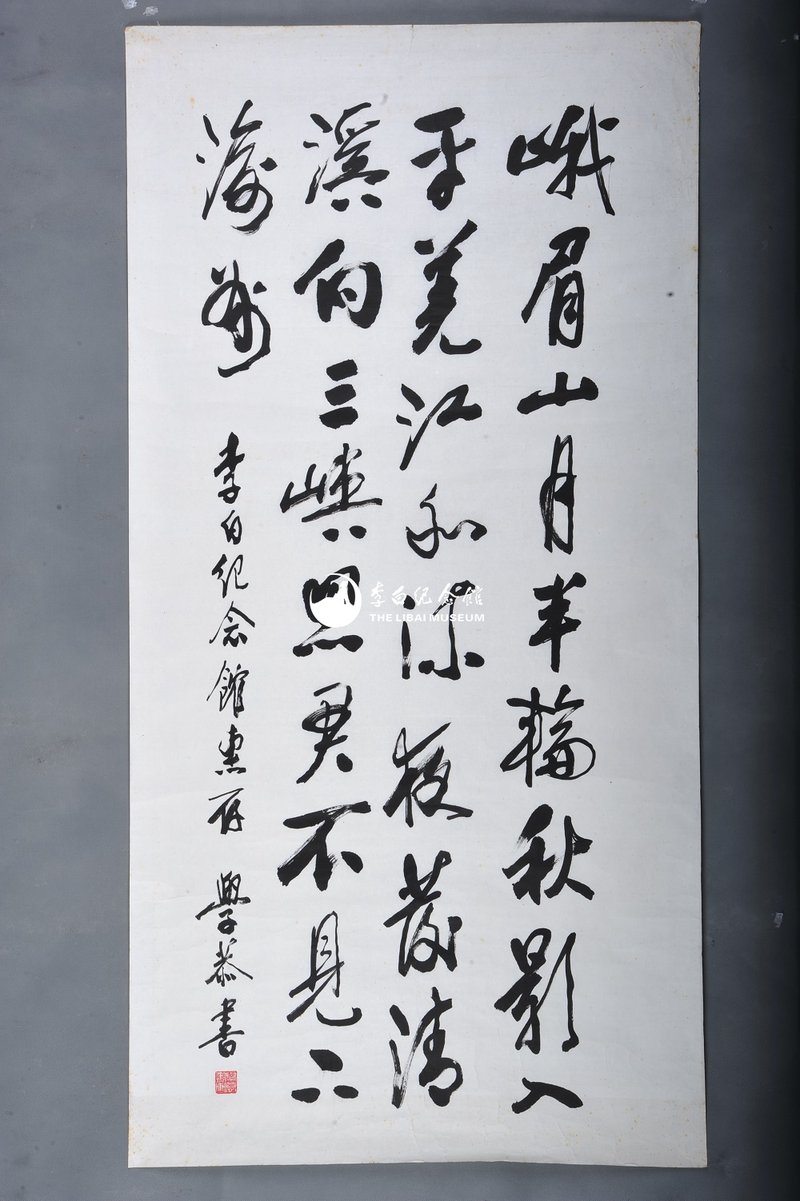 峨眉山月半輪秋影入
平羌江水流夜發清
溪向三峽思君不見下
渝州
李白紀念館惠存 學恭書
李白纪念館
THE LIBAI MUSEUM